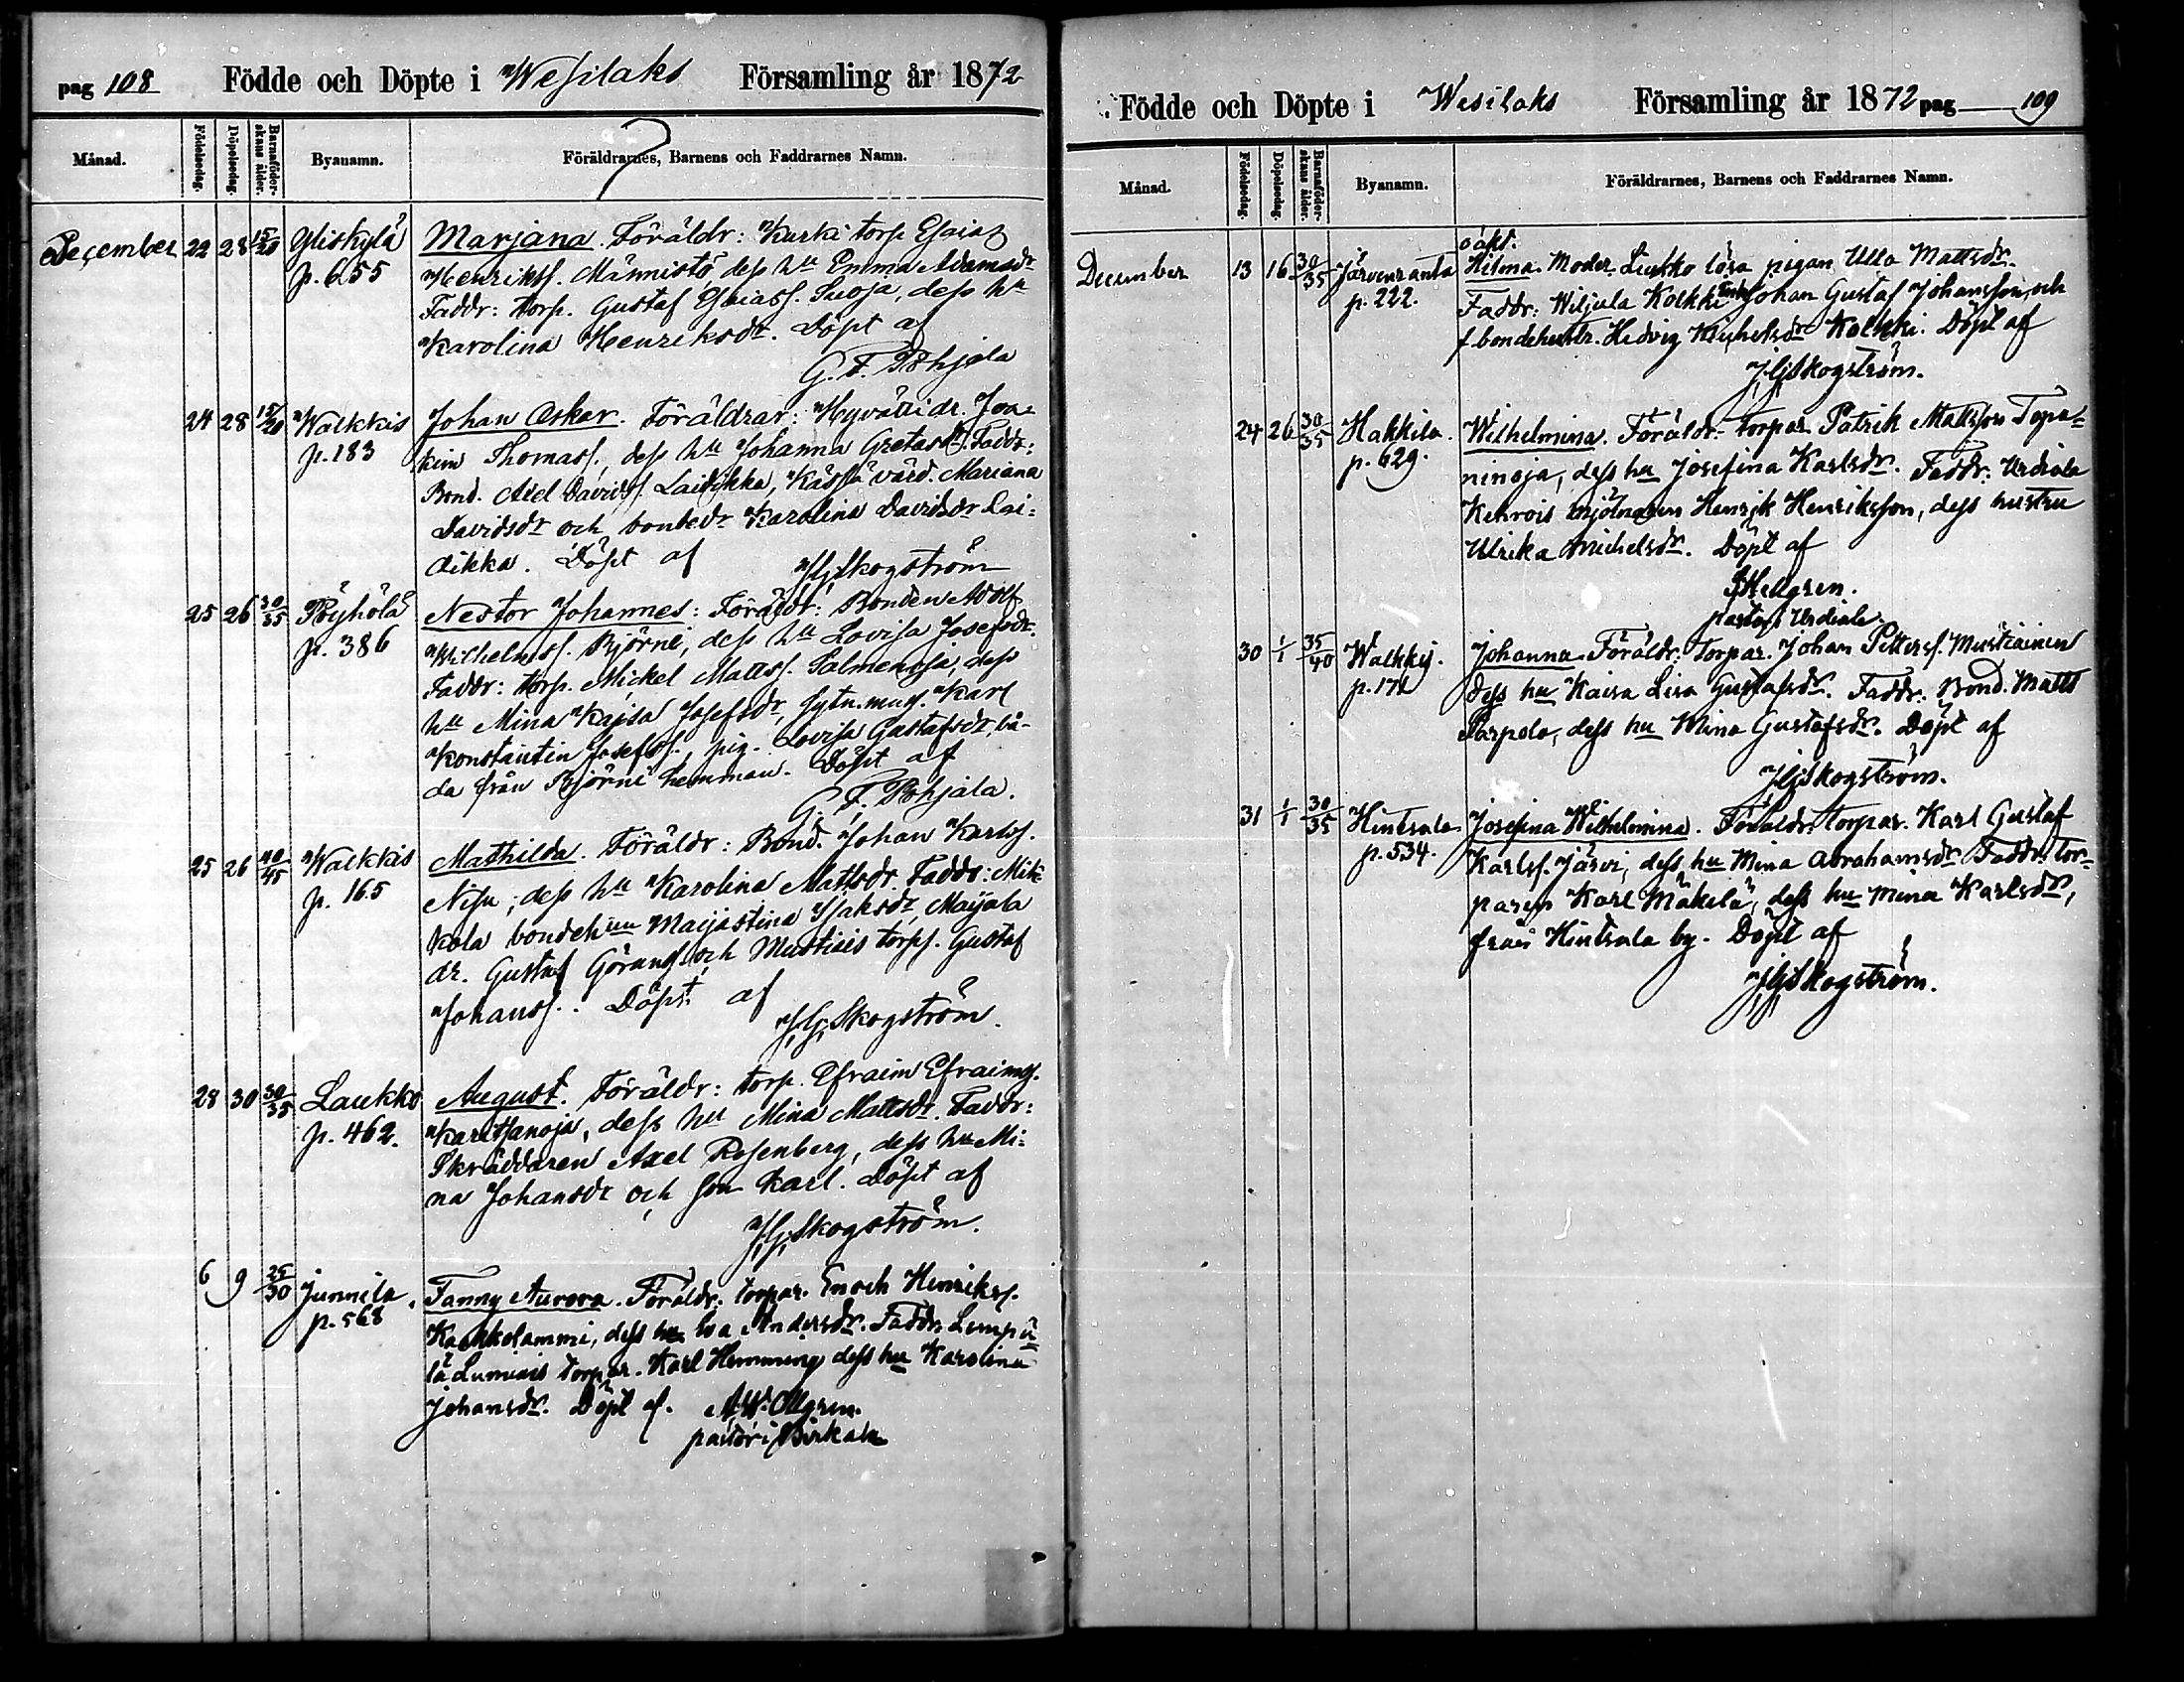 pag 108 Födde och Döpte i Wesilaks Församling år 1872
Månad. Födelsedag. Döpelsedag. Barnaföderskans ålder. Byanamn. Föräldrarnes, Barnens och Faddrarnes Namn.
December 22 28 15/20 Yliskylä Marjana. Föräldr: Kurki torp Esaias
p. 655 Henrikss. Männistö, dess hu Emma Adamsdr
Faddr: torp. Gustaf Esaiass. Suoja, dess hu
Karolina Henriksdr. Döpt af
G. F. Pohjala
24 28 15/20 Walkkis Johan Oskar. Föräldrar: Hyvätti dr. Joa=
p. 183 kim Thomass., dess hu Johanna Gretasdr. Faddr:
Bond. Axel Davidss. Laidikka, Kässä värd. Mariana
Davidsdr och bondedr Karolina Davidsdr Lai=
dikka. Döpt af
J.G. Skogström
25 26 30/35 Pöyhölä Nestor Johannes: Föräldr: Bonden Adolf
p. 386 Wilhelmss. Björni, dess hu Lovisa Josefsdr.
Faddr: torp. Mickel Matss. Salmenoja, dess
hu Mina Kajsa Josefsdr, sytn.man. Karl
Konstantin Josefss., pig. Lovisa Gustafsdr, bå-
da från Björni hemman. Döpt af
G. F. Pohjala.
25 26 40/45 Walkkis Mathilda. Föräldr: Bond. Johan Karlss.
p. 165 Nisu, dess hu Karolina Mattsdr. Faddr: Mik=
kola bondehun Maijastina Isaksdr, Maijala
dr. Gustaf Görans och Mustiais torps. Gustaf
Johanss.. Döpt af
J.G. Skogström.
28 30 30/35 Laukko August. Föräldr: torp. Efraim Efraims.
p. 462. Karitsanoja, dess hu Mina Mattsdr. Faddr:
Skräddaren Axel Rosenberg, dess hu Mi=
na Johansdr och son Karl. Döpt af
J.G. Skogström.
6 9 25/30 Junnila. Fanny Aurora. Föräldr. torpar. Enoch Henrikss.
p. 568 Kaakkolammi, dess hu Eva Andersdr. Faddr. Lempä=
lä Lumiais torpar. Karl Hemming dess hu Karolina
Johansdr. Döpt af. A. W. Ollgren.
pastor i Birkala
Födde och Döpte i Wesilaks Församling år 1872 pag 109
Månad. Födelsedag. Döpelsedag. Barnaföderskans ålder. Byanamn. Föräldrarnes, Barnens och Faddrarnes Namn.
oäkt.
December 13 16 30/35 Järvenranta Hilma. Moder. Liukko lösa pigan Ulla Mattsdr.
p. 222. Faddr: Wiljala Kolkki Johan Gustaf Johansson, och
f. bondehustr. Hedvig Michelsdr Kolkki. Döpt af
J.G. Skogström.
24 26 30/35 Hakkila. Wilhelmina. Föräldr: torpar. Patrik Mattsson Topa=
p. 629. ninoja, dess hu Josefina Karlsdr. Faddr: Urdiala
Kehrois mjölnaren Henrik Henriksson, dess hustru
Ulrika Michelsdr. Döpt af
Hellgren.
pastor i Urdiala.
30 1/1 35/40 Walkkis. Johanna. Föräldr: Torpar. Johan Petterss. Mustiainen
p. 171 dess hu Kaisa Lisa Gustafsdr. Faddr. Bond. Matts
Parpola, dess hu Mina Gustafsdr. Döpt af
J.G. Skogström.
31 1/1 30/35 Hintsala Josefina Wilhelmina. Föräldr. torpar. Karl Gustaf
p. 534. Karlss. Järvi, dess hu Mina Abrahamsdr Faddr. tor=
paren Karl Mäkelä, dess hu Mina Karlsdr,
från Hintsala by. Döpt af
J.G. Skogström.